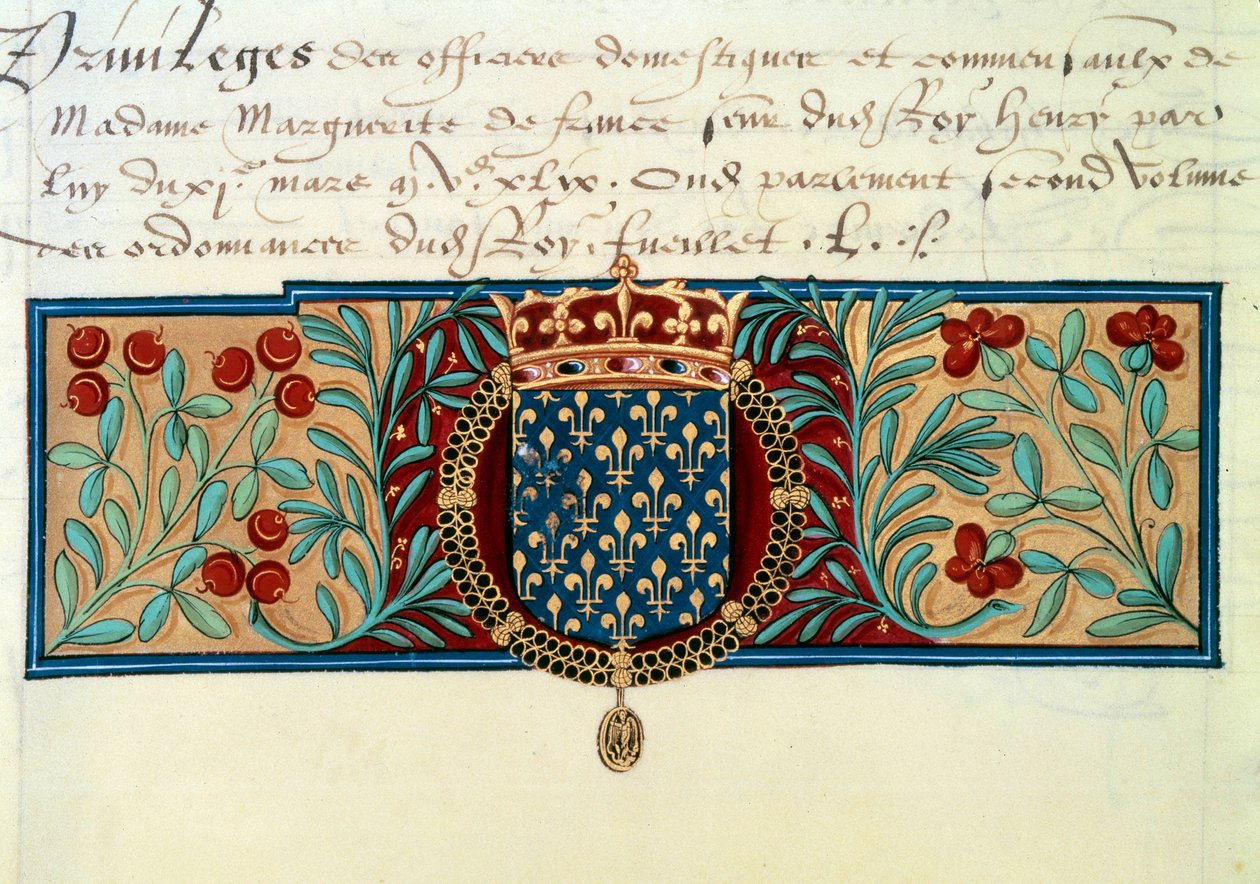 Priuileges des officiers domestiques et commensaulx de
Madame Marguerite de france seur dud Roy henry par
luy du xj.e mars m. vc. xlix. Oud parlement second volume
des ordonnances dud Roy. fueillet . L. :